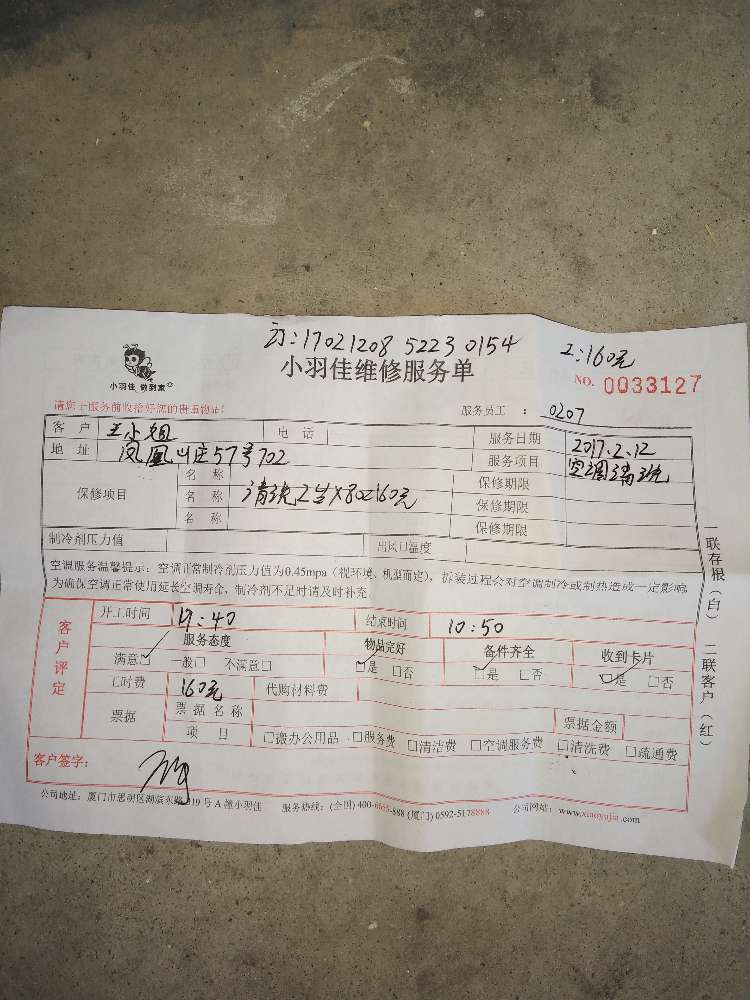 订:17021208 5223 0154
工:160元
小羽佳 做到家
小羽佳维修服务单
NO. 0033127
请您于服务前收拾好您的贵重物品!
服务员工 : 0207
客 户 王小姐 电 话 服务日期 2017.2.12
地 址 凤凰山庄57号702 服务项目 空调清洗
保修项目
名 称 保修期限
名 称 保修期限
名 称 保修期限
制冷剂压力值 出风口温度
空调服务温馨提示:空调正常制冷剂压力值为0.45mpa(视环境、机型而定),拆装过程会对空调制冷或制热造成一定影响
为确保空调正常使用延长空调寿命,制冷剂不足时请及时补充
客户评定
开工时间 结束时间 10:50
服务态度 物品完好 备件齐全 收到卡片
满意□ 一般□ 不满意□ □是 □否 □是 □否 □是 □否
工时费 160元 代购材料费
票据 票据名称 票据金额
项 目 □搬办公用品 □服务费 □清洁费 □空调服务费 □清洗费 □疏通费
客户签字:
公司地址:厦门市思明区湖滨东路319号A幢小羽佳 服务热线:(全国) 400-6666-888 (厦门) 0592-5178888 公司网址:www.xiaoyujia.com
一联存根(白) 二联客户(红)